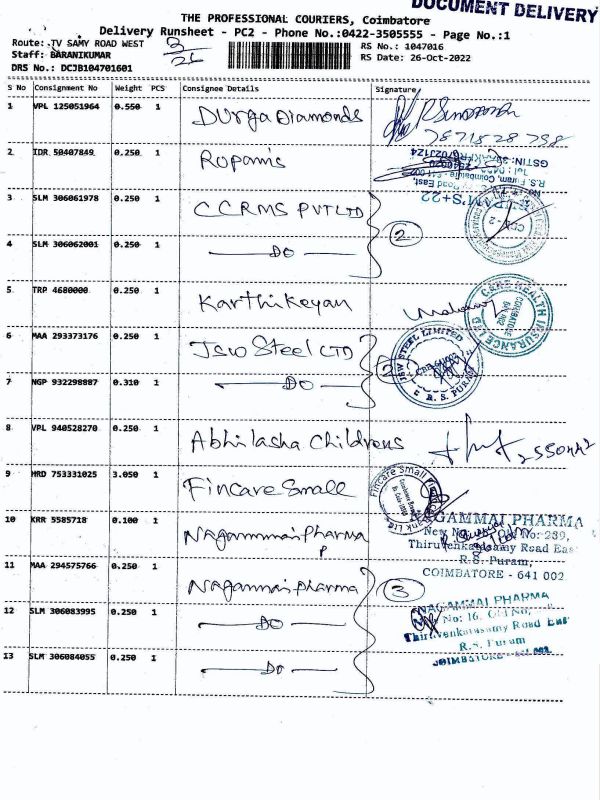 DOCUMENT DELIVERY
THE PROFESSIONAL COURIERS, Coimbatore
Delivery Runsheet - PC2 - Phone No.:0422-3505555 - Page No.:1
Route: TV SAMY ROAD WEST
Staff: BARANIKUMAR
DRS No.: DCJB104701601
RS No.: 1047016
RS Date: 26-Oct-2022
S No Consignment No Weight PCS Consignee Details Signature
1 VPL 125051964 0.550 1 Durga Diamonds
7871828798
2 IDR 50407849 0.250 1 Ropams
3 SLM 306061978 0.250 1 CCRMS PVT LTD
4 SLM 306062001 0.250 1 DO
2
5 TRP 4680000 0.250 1 Karthikeyan
CARE HEALTH INSURANCE LTD
COIMBATORE
641 002
6 MAA 293373176 0.250 1 JSW Steel LTD
7 NGP 932298887 0.310 1 DO
JSW STEEL LIMITED
R.S. PURAM
8 VPL 940528270 0.250 1 Abhilasha Childrens
9 HRD 753331025 3.050 1 Fincare Small
Fincare Small
10 KRR 5585718 0.100 1 Nagammai Pharma
P
NAGAMMAI PHARMA
New No: 239,
Thiruvenkadasamy Road East
R.S. Puram,
COIMBATORE - 641 002
11 MAA 294575766 0.250 1 Nagammai Pharma
12 SLM 306083995 0.250 1 DO
13 SLM 306084055 0.250 1 DO
3
NAGAMMAI PHARMA
No: 16, Old No,
Thiruvenkatasamy Road East
R.S. Puram
COIMBATORE - 641 002